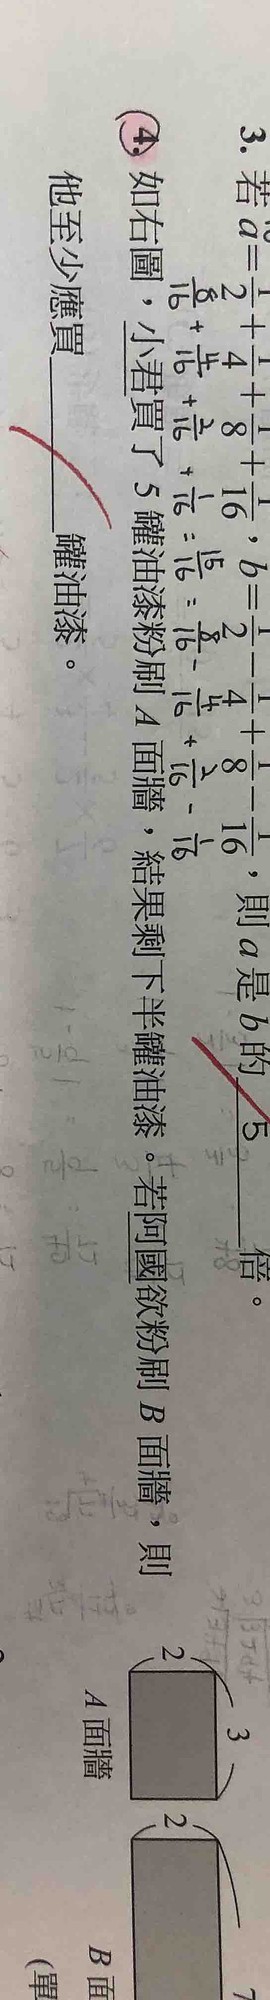 3. 若 a = 1/2 + 1/4 + 1/8 + 1/16，b = 1/2 − 1/4 + 1/8 − 1/16，則 a 是 b 的 5 倍。
8/16 + 4/16 + 2/16 + 1/16 = 15/16 = 8/16 − 4/16 + 2/16 − 1/16
4. 如右圖，小君買了 5 罐油漆粉刷 A 面牆，結果剩下半罐油漆。若阿國欲粉刷 B 面牆，則
他至少應買 罐油漆。
3
2
A 面牆
7
2
B 面
(單